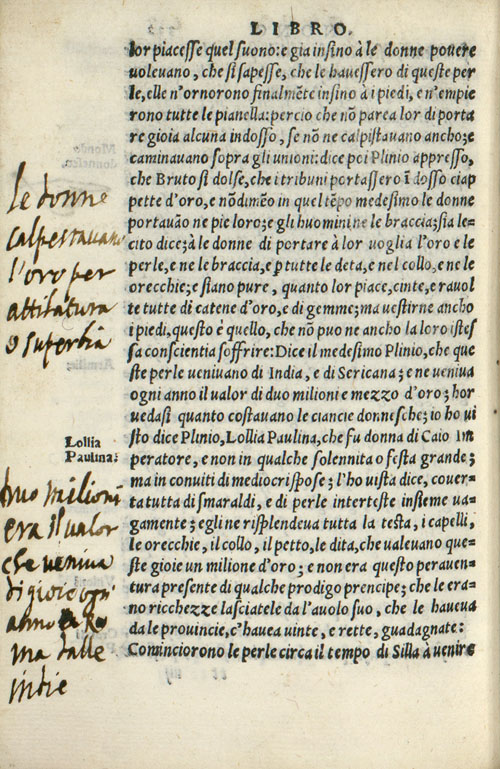 LIBRO.
lor piacesse quel suono: e gia insino à le donne pouere
uoleuano, che si sapesse, che le hauessero di queste per
le, elle n'ornorono finalmẽte insino à i piedi, e n'empie
rono tutte le pianella: percio che nõ parea lor di porta
re gioia alcuna indosso, se nõ ne calpistauano ancho; e
caminauano sopra gli unioni: dice poi Plinio appresso,
che Bruto si dolse, che i tribuni portassero ĩ dosso ciap
pette d'oro, e nõdimẽo in quel tẽpo medesimo le donne
portauão ne pie loro; e gli huomini ne le braccia; sia le=
cito dice; à le donne di portare à lor uoglia l'oro e le
perle, e ne le braccia, e p tutte le deta, e nel collo, e ne le
orecchie; e siano pure, quanto lor piace, cinte, e rauol
te tutte di catene d'oro, e di gemme; ma uestirne ancho
i piedi, questo è quello, che nõ puo ne ancho la loro istes
sa conscientia soffrire: Dice il medesimo Plinio, che que
ste perle ueniuano di India, e di Sericana; e ne ueniua
ogni anno il ualor di duo milioni e mezzo d'oro; hor
uedasi quanto costauano le ciancie donnesche; io ho ui
sto dice Plinio, Lollia Paulina, che fu donna di Caio Im
peratore, e non in qualche solennita o festa grande;
ma in conuiti di mediocri spose; l'ho uista dice, couer=
ta tutta di smaraldi, e di perle interteste insieme ua=
gamente; egli ne risplendeua tutta la testa, i capelli,
le orecchie, il collo, il petto, le dita, che ualeuano que=
ste gioie un milione d'oro; e non era questo perauen=
tura presente di qualche prodigo prencipe; che le era=
no ricchezze lasciatele da l'auolo suo, che le haueua
da le prouincie, c'hauea uinte, e rette, guadagnate:
Cominciorono le perle circa il tempo di Silla à uenire
le donne
calpestauano
l'oro per
attilatura
o superbia
Lollia
Paulina;
duo milioni
era il valor
che veniva
di gioie ogn
anno a Ro
ma dalle
indie